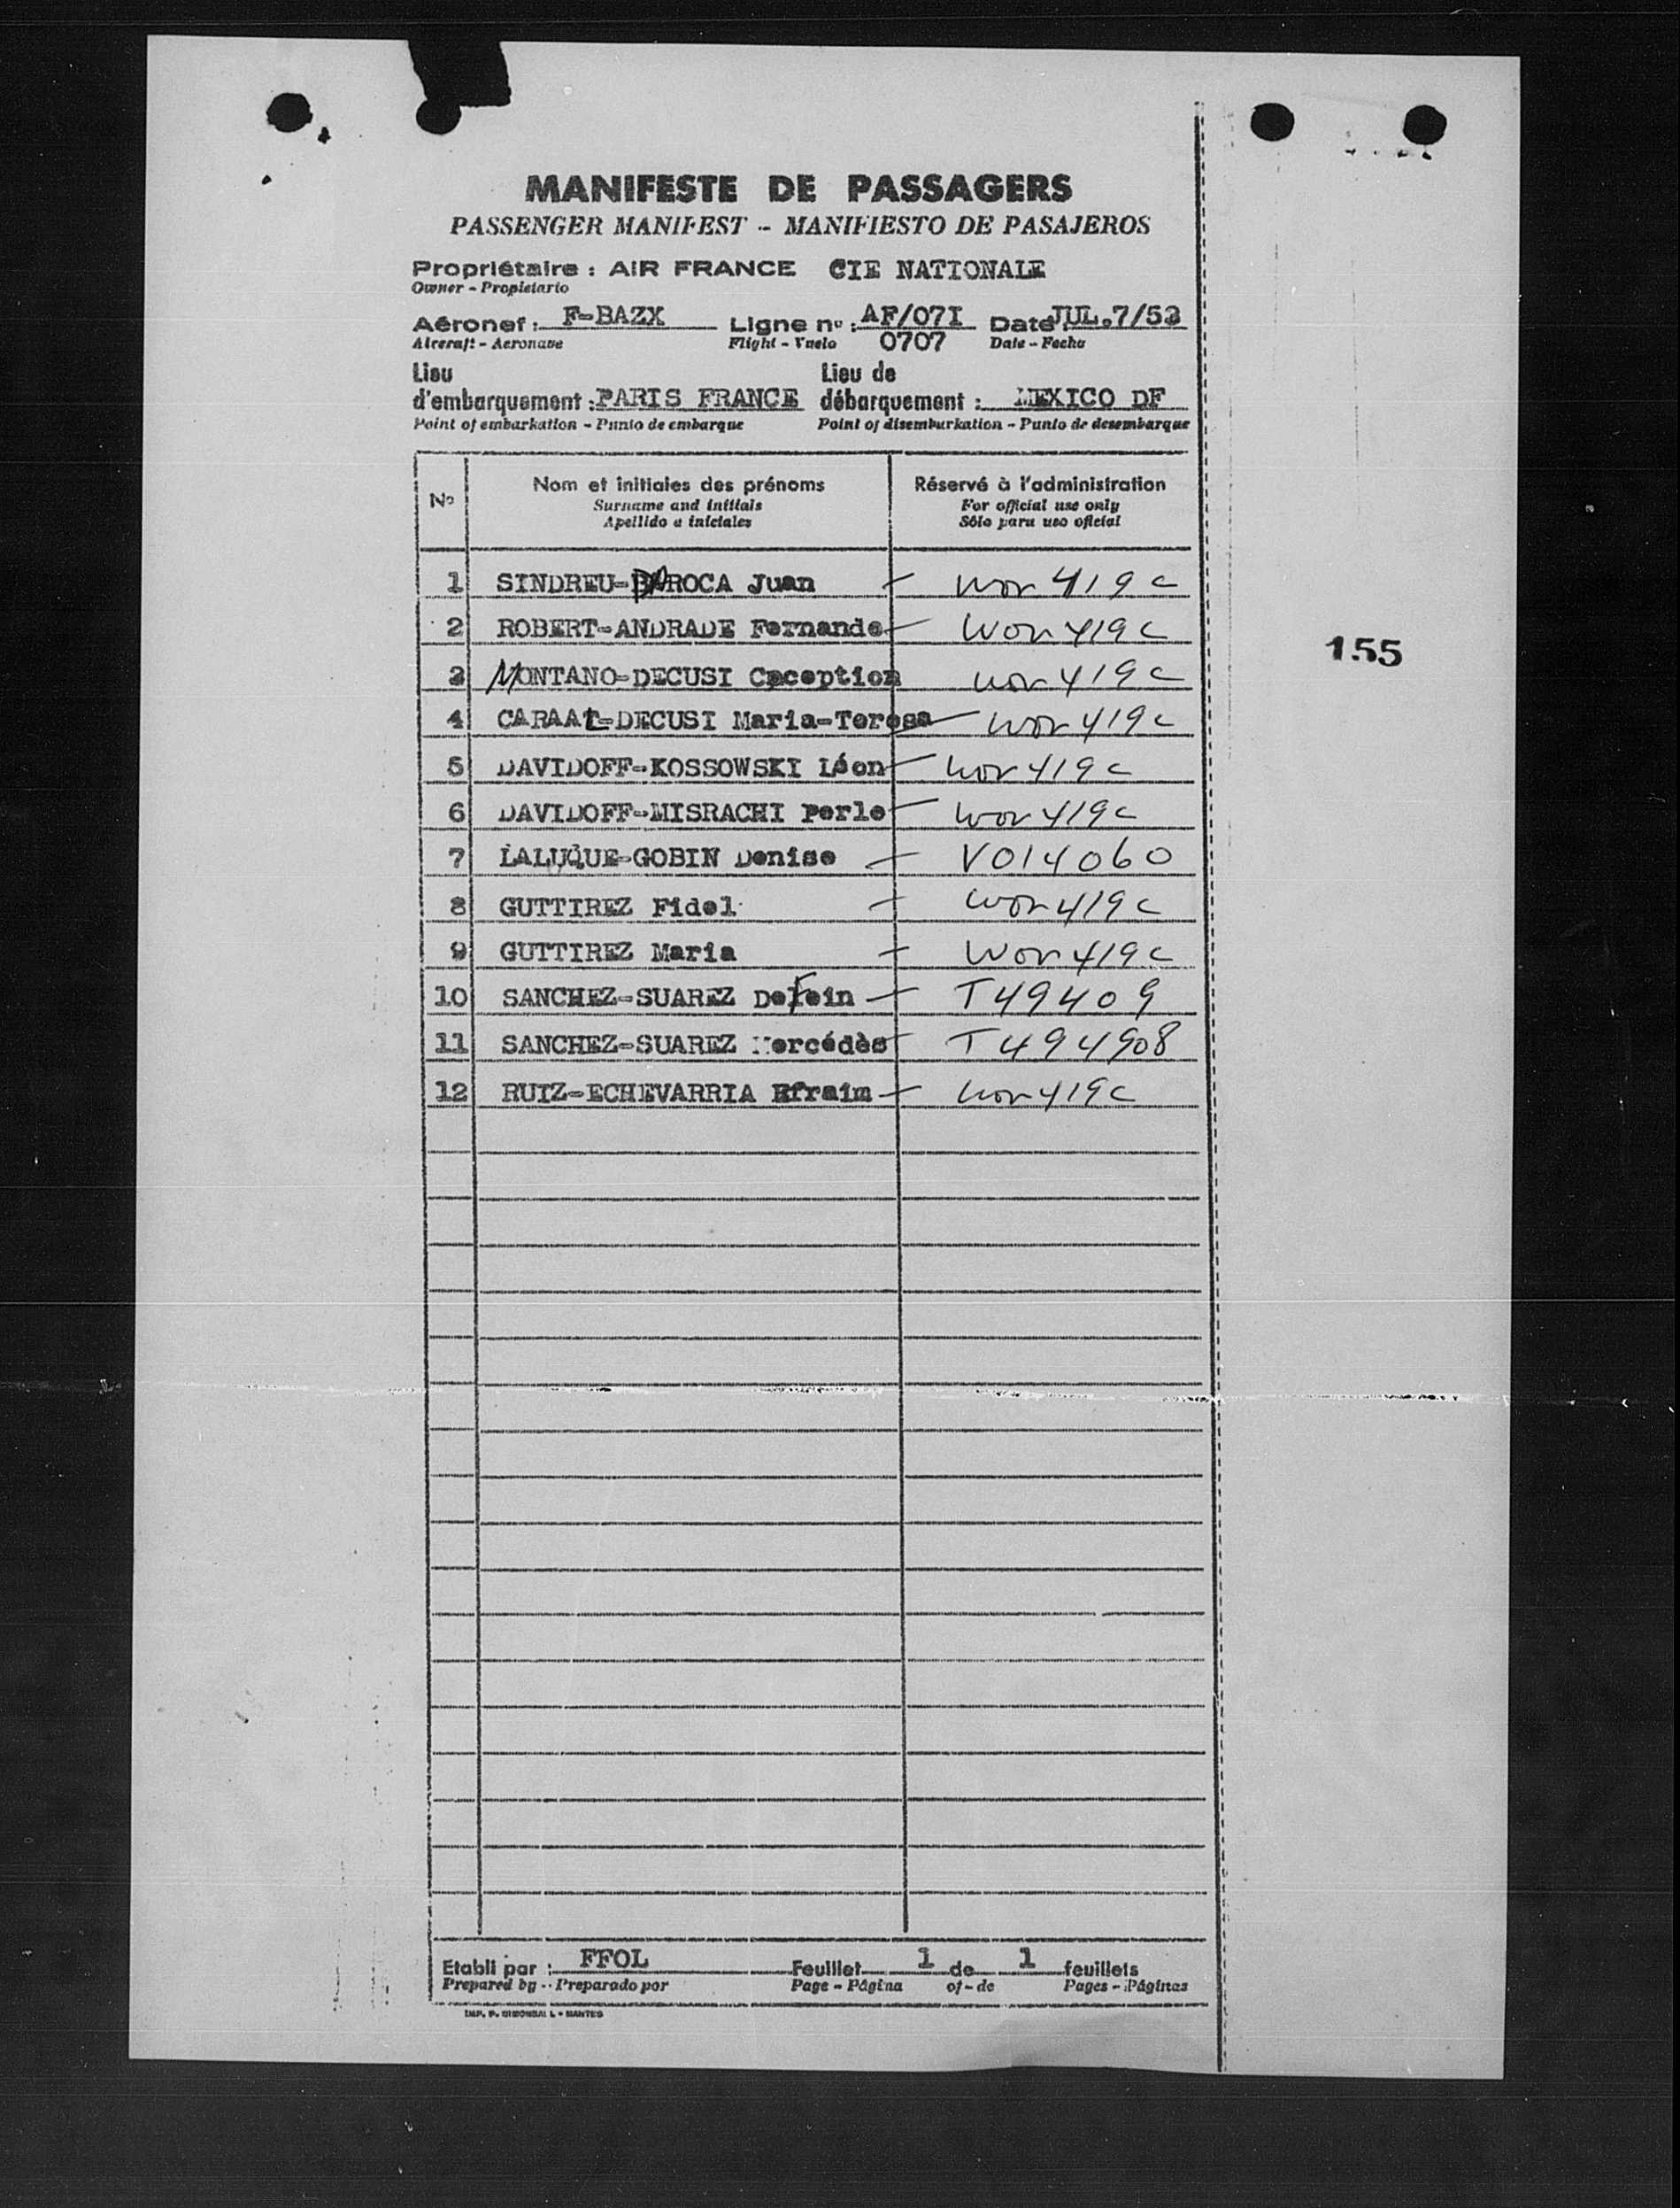 MANIFESTE DE PASSAGERS
PASSENGER MANIFEST - MANIFIESTO DE PASAJEROS
Propriétaire : AIR FRANCE CIE NATIONALE
Owner - Propietario
Aéronef : F-BAZX Ligne nº : AF/07I Date JUL.7/53
Aircraft - Aeronave Flight - Vuelo 0707 Date - Fecha
Lieu Lieu de
d'embarquement : PARIS FRANCE débarquement : MEXICO DF
Point of embarkation - Punto de embarque Point of disembarkation - Punto de desembarque
Nº Nom et initiales des prénoms Réservé à l'administration
Surname and initials For official use only
Apellido e iniciales Sólo para uso oficial
1 SINDREU-BAROCA Juan - won 419 c
2 ROBERT-ANDRADE Fernande - won 419 c
3 MONTANO-DECUSI Cpception won 419 c
4 CARAAL-DECUSI Maria-Teresa - won 419 c
5 DAVIDOFF-KOSSOWSKI Léon - won 419 c
6 DAVIDOFF-MISRACHI Perle - won 419 c
7 LALUQUE-GOBIN Denise - V014060
8 GUTTIREZ Fidel - won 419 c
9 GUTTIREZ Maria - won 419 c
10 SANCHEZ-SUAREZ Delfein - T49409
11 SANCHEZ-SUAREZ Mercédès - T494908
12 RUIZ-ECHEVARRIA Efraim - won 419 c
155
Etabli par : FFOL Feuillet 1 de 1 feuillets
Prepared by - Preparado por Page - Página of - de Pages - Páginas